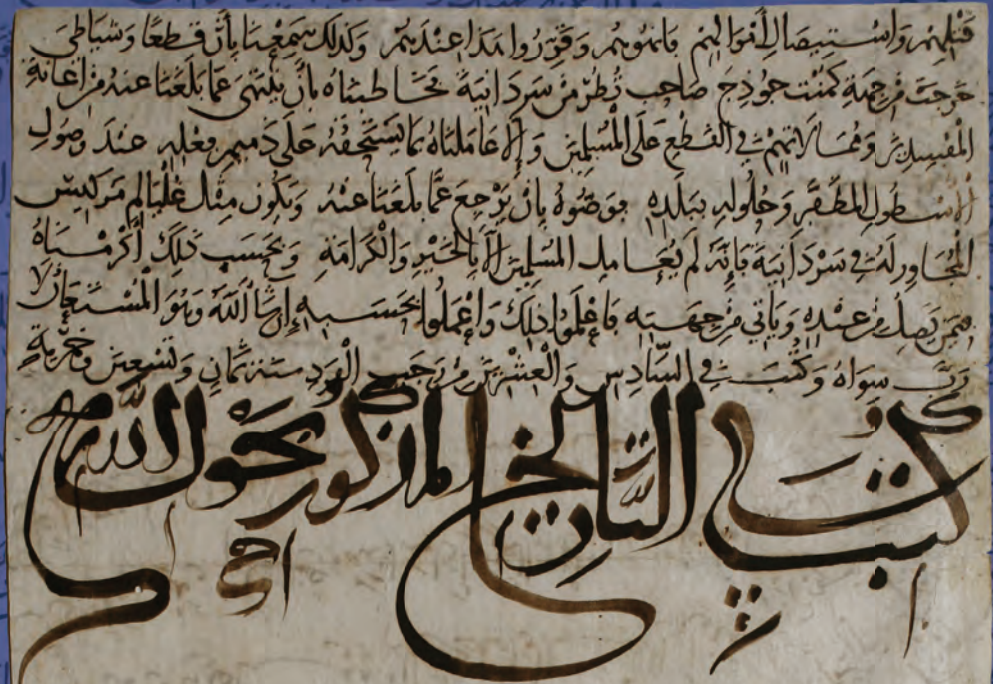 قتلهم واستيصال أموالهم فانهوهم وقرروا هذا عندهم وكذلك سمعنا بأن قطعا وشباطي
خرجت من جهة كمنت جوذج صاحب تطر من سردانية فخاطبناه بأن ينتهي عما بلغنا عنه من إعانة
المفسدين وممالاتهم في القطع على المسلمين وإلا عاملناه بما يستحقه على ذميم فعله عند وصول
الأسطول المظفر وحلوله ببلده فوصوه بأن يرجع عما بلغنا عنه ويكون مثل غليالم مركيس
المجاور له في سردانية فإنه لم يعامل المسلمين إلا بالخير والكرامة وبحسب ذلك أكرمناه
فيمن يصل من عنده ويأتي من جهته فاعلموا ذلك واعملوا بحسبه إن شا الله وهو المستعان لا
رب سواه وكتب في السادس والعشرين من رجب الفرد سنة ثمان وتسعين وخمسماية
كتب في التاريخ المذكور بحول الله